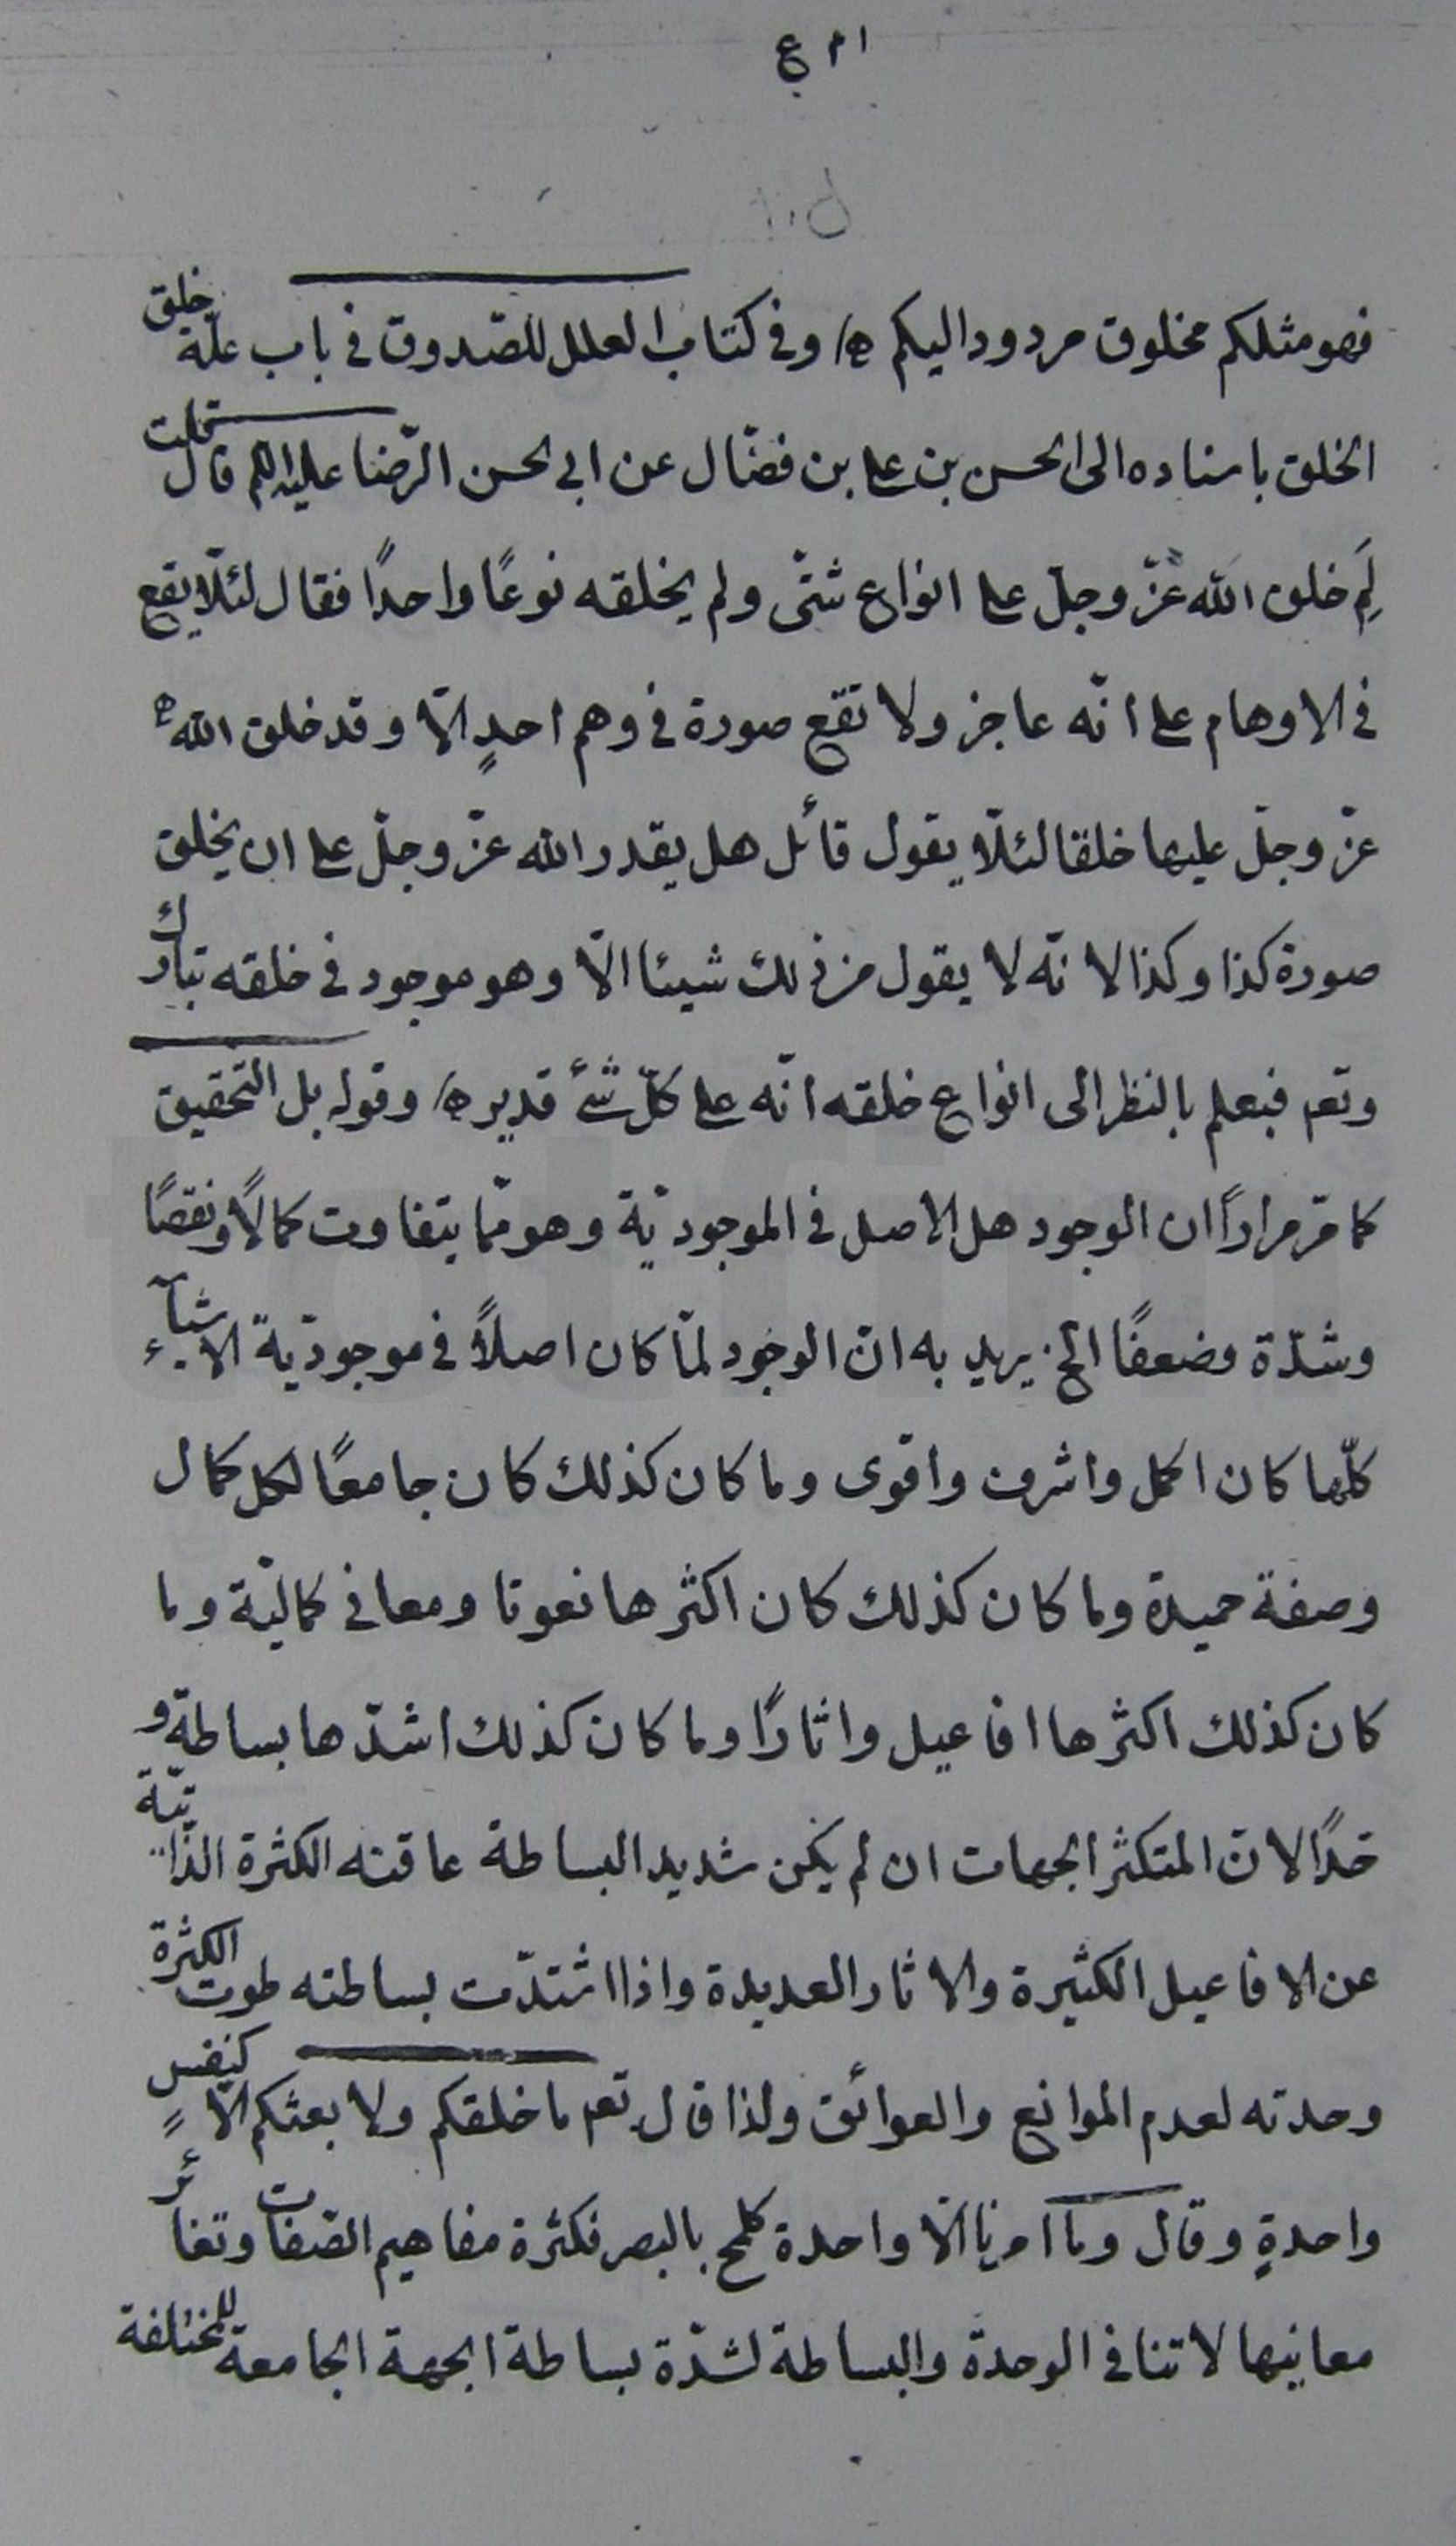 فهو مثلكم مخلوق مردود اليكم ه‍/ وفي كتاب العلل للصّدوق في باب علّة خلق
الخلق باسناده الى الحسن بن علي بن فضّال عن ابي الحسن الرّضا عليه السلم قال قلت
لِمَ خلق الله عزّ وجلّ على انواع شتّى ولم يخلقه نوعًا واحدًا فقال لئلّا يقع
في الاوهام على انّه عاجز ولا تقع صورة في وهم احدٍ الّا وقد خلق الله
عزّ وجلّ عليها خلقا لئلّا يقول قائل هل يقدر الله عزّ وجلّ على ان يخلق
صورة كذا وكذا لانّه لا يقول من ذلك شيئا الّا وهو موجود في خلقه تبارك
وتعم فيعلم بالنظر الى انواع خلقه انّه على كلّ شئ قدير ه‍/ وقوله بل التّحقيق
كما مرّ مرارًا ان الوجود هل الاصل في الموجوديّة وهو ممّا يتفاوت كمالًا ونقصًا
وشدّة وضعفًا الخ يريد به انّ الوجود لمّا كان اصلًا في موجوديّة الاشيآء
كلّها كان اكمل واشرف واقوى وما كان كذلك كان جامعًا لكل كمال
وصفة حميدة وما كان كذلك كان اكثرها نعوتا ومعاني كماليّة وما
كان كذلك اكثرها افاعيل واثارًا وما كان كذلك اشدّها بساطة و
لانّ المتكثر الجهات ان لم يكن شديد البساطة عاقته الكثرة الذّاتيّة
عن الافاعيل الكثيرة والاثار العديدة واذا اشتدّت بساطته طوت الكثرة
وحدته لعدم الموانع والعوائق ولذا قال تعم ما خلقكم ولا بعثكم الّا كنفسٍ
واحدةٍ وقال وما امرنا الّا واحدة كلمح بالبصر فكثرة مفاهيم الصّفات وتغائر
معانيها لا تنافي الوحدة والبساطة لشدّة بساطة الجهة الجامعة للمختلفة